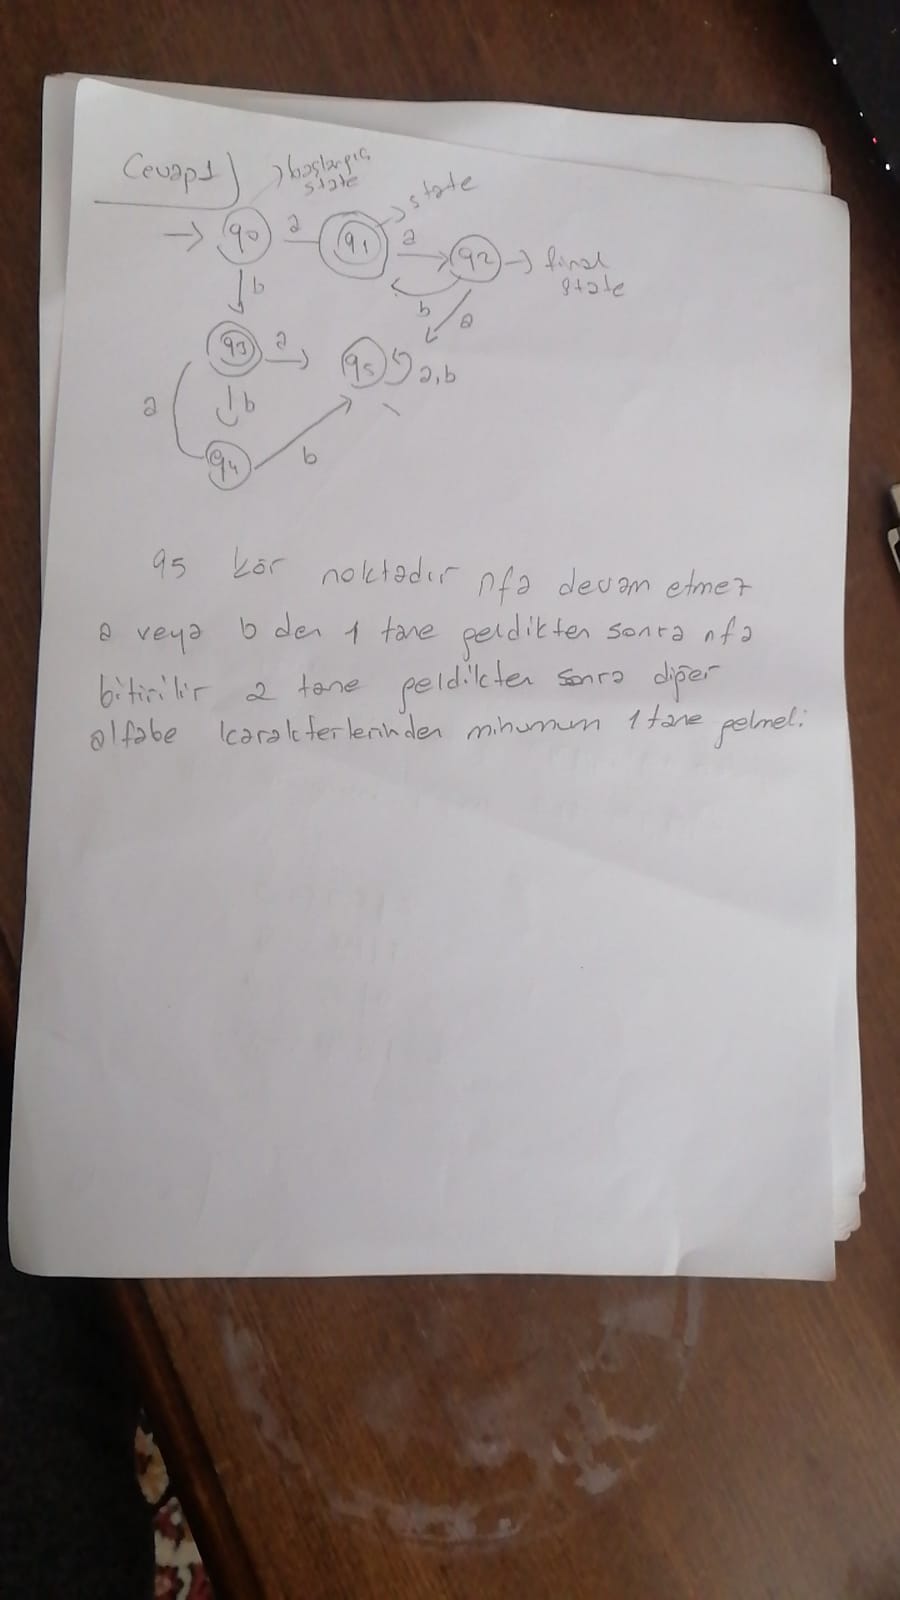 Cevap1)
başlangıç
state
state
→ q0 a q1 a → q2 → final
state
b
b a
q3 a → q5 a,b
a b
q4 b
q5 kör noktadır nfa devam etmez
a veya b den 1 tane geldikten sonra nfa
bitirilir 2 tane geldikten sonra diğer
alfabe karakterlerinden minumum 1 tane gelmeli